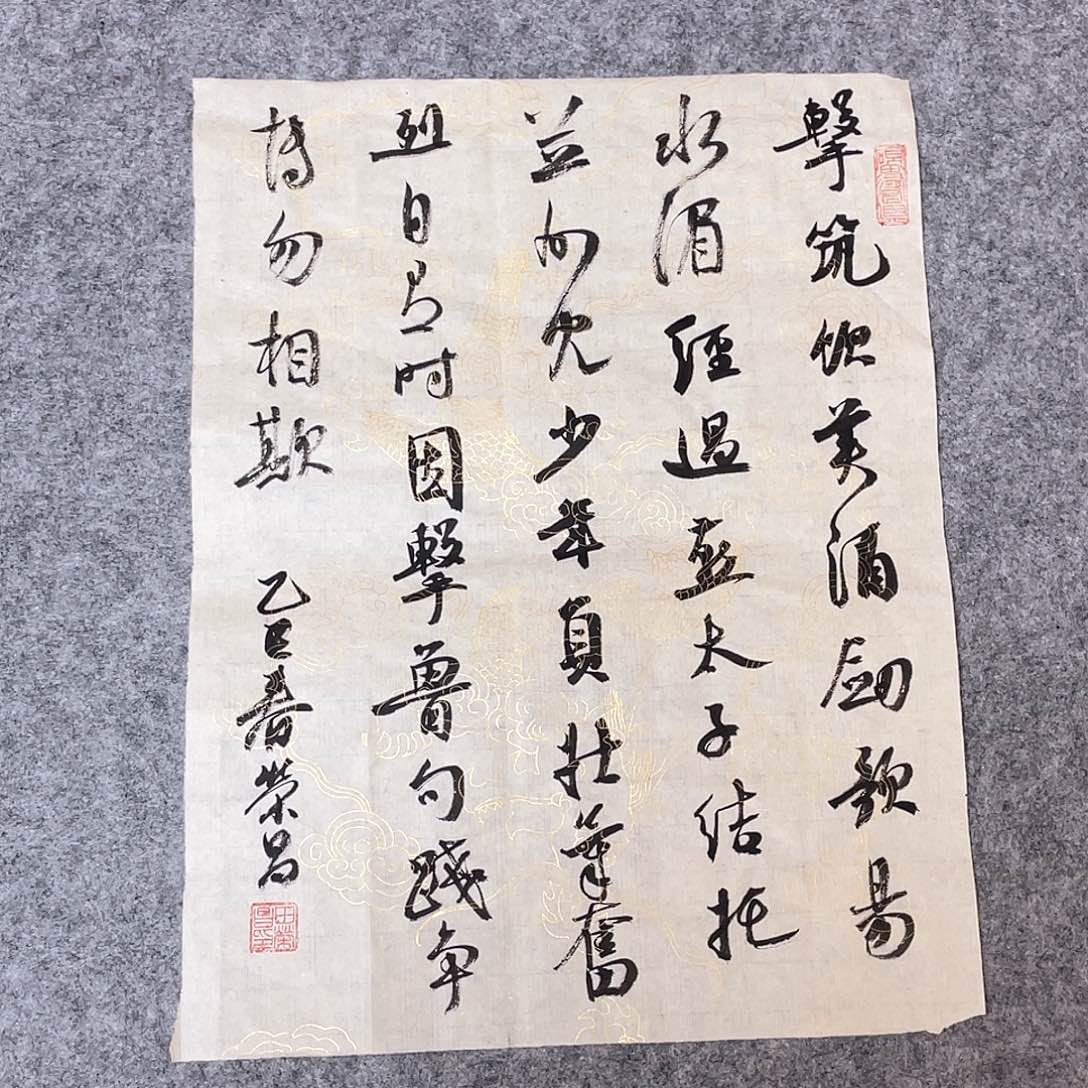 擊筑飲美酒劍歌易
水湄經過燕太子結托
並州兒少年負壯筆奮
烈自有時因擊魯句踐争
博勿相欺 乙巳春榮昌